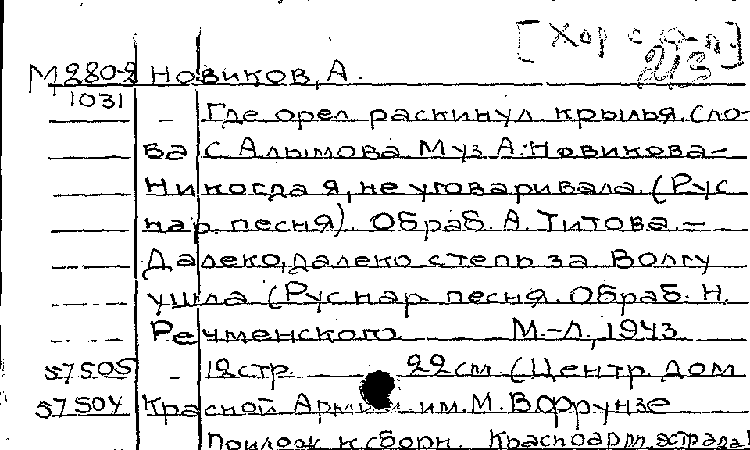 [Хор с ф-п]
2/3
М 280-2 Новиков, А.
1031 – Где орел раскинул крылья. Сло-
ва С Алымова Муз А. Новикова –
Никогда я, не уговаривала. (Рус
нар. песня). Обраб. А. Титова. –
Далеко, далеко степь за Волгу
ушла (Рус нар песня. Обраб. Н.
Речменского М.-Л., 1943
57505 – 12стр. 22см (Центр. Дом
57504 Красной Армии им. М. В Фрунзе
Прилож к сборн. Красноарм. эстрада